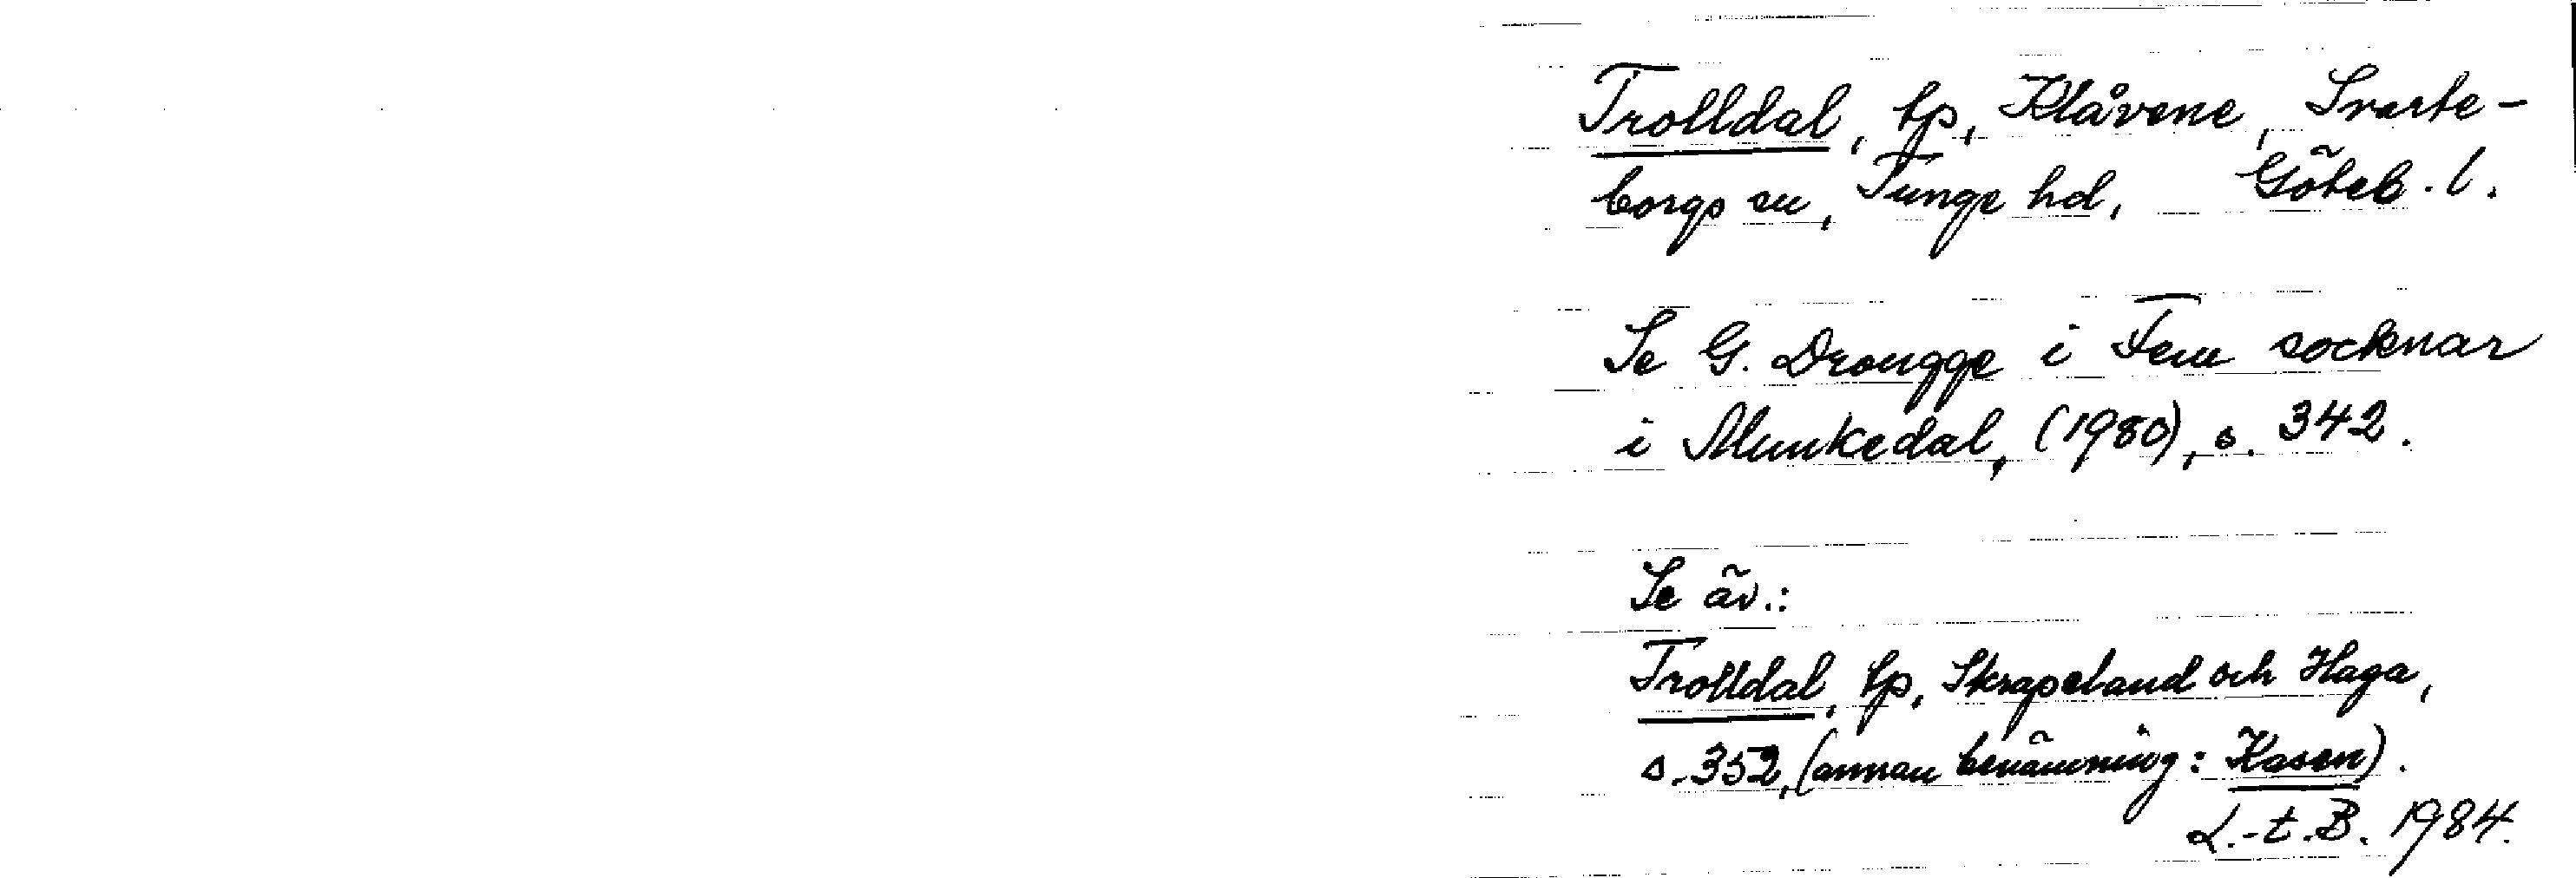 Trolldal, tp, Klåvene, Svarte-
borgs sn, Tunge hd, Göteb. l.
Se G. Drougge i Fem socknar
i Munkedal, (1980), s. 342.
Se äv.:
Trolldal, tp, Skrapeland och Haga,
s. 352, (annan benämning: Kasen).
L.-t. B. 1984.